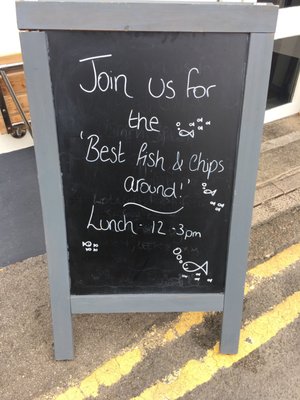 Join us for
the
'Best fish & Chips
around!'
Lunch - 12 - 3pm